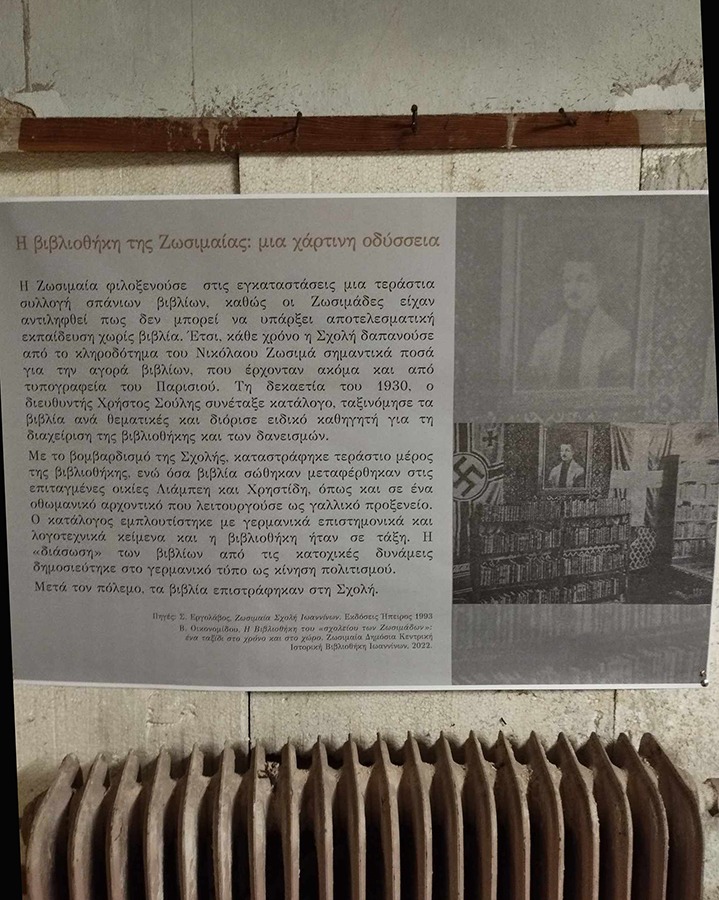 Η βιβλιοθήκη της Ζωσιμαίας: μια χάρτινη οδύσσεια
Η Ζωσιμαία φιλοξενούσε στις εγκαταστάσεις μια τεράστια
συλλογή σπάνιων βιβλίων, καθώς οι Ζωσιμάδες είχαν
αντιληφθεί πως δεν μπορεί να υπάρξει αποτελεσματική
εκπαίδευση χωρίς βιβλία. Έτσι, κάθε χρόνο η Σχολή δαπανούσε
από το κληροδότημα του Νικόλαου Ζωσιμά σημαντικά ποσά
για την αγορά βιβλίων, που έρχονταν ακόμα και από
τυπογραφεία του Παρισιού. Τη δεκαετία του 1930, ο
διευθυντής Χρήστος Σούλης συνέταξε κατάλογο, ταξινόμησε τα
βιβλία ανά θεματικές και διόρισε ειδικό καθηγητή για τη
διαχείριση της βιβλιοθήκης και των δανεισμών.
Με το βομβαρδισμό της Σχολής, καταστράφηκε τεράστιο μέρος
της βιβλιοθήκης, ενώ όσα βιβλία σώθηκαν μεταφέρθηκαν στις
επιταγμένες οικίες Λιάμπεη και Χρηστίδη, όπως και σε ένα
οθωμανικό αρχοντικό που λειτουργούσε ως γαλλικό προξενείο.
Ο κατάλογος εμπλουτίστηκε με γερμανικά επιστημονικά και
λογοτεχνικά κείμενα και η βιβλιοθήκη ήταν σε τάξη. Η
«διάσωση» των βιβλίων από τις κατοχικές δυνάμεις
δημοσιεύτηκε στο γερμανικό τύπο ως κίνηση πολιτισμού.
Μετά τον πόλεμο, τα βιβλία επιστράφηκαν στη Σχολή.
Πηγές: Σ. Εργολάβος, Ζωσιμαία Σχολή Ιωαννίνων, Εκδόσεις Ήπειρος 1993
Β. Οικονομίδου, Η Βιβλιοθήκη του «σχολείου των Ζωσιμάδων»:
ένα ταξίδι στο χρόνο και στο χώρο, Ζωσιμαία Δημόσια Κεντρική
Ιστορική Βιβλιοθήκη Ιωαννίνων, 2022.